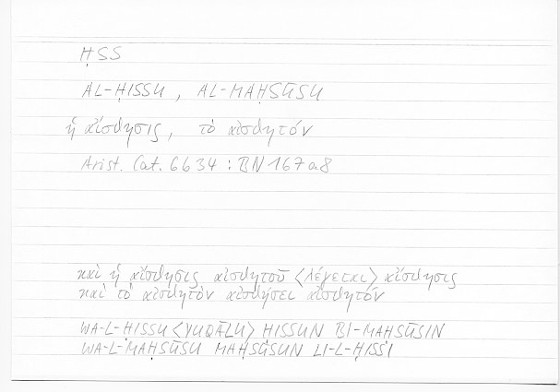 ḤSS
AL-ḤISSU, AL-MAḤSŪSU
ἡ αἴσθησις, τὸ αἰσθητόν
Arist. Cat. 6b34 : BN 167a8
καὶ ἡ αἴσθησις αἰσθητοῦ <λέγεται> αἴσθησις
καὶ τὸ αἰσθητὸν αἰσθήσει αἰσθητόν
WA-L-ḤISSU <YUQĀLU> ḤISSUN BI-MAḤSŪSIN
WA-L-MAḤSŪSU MAḤSŪSUN LI-L-ḤISSI